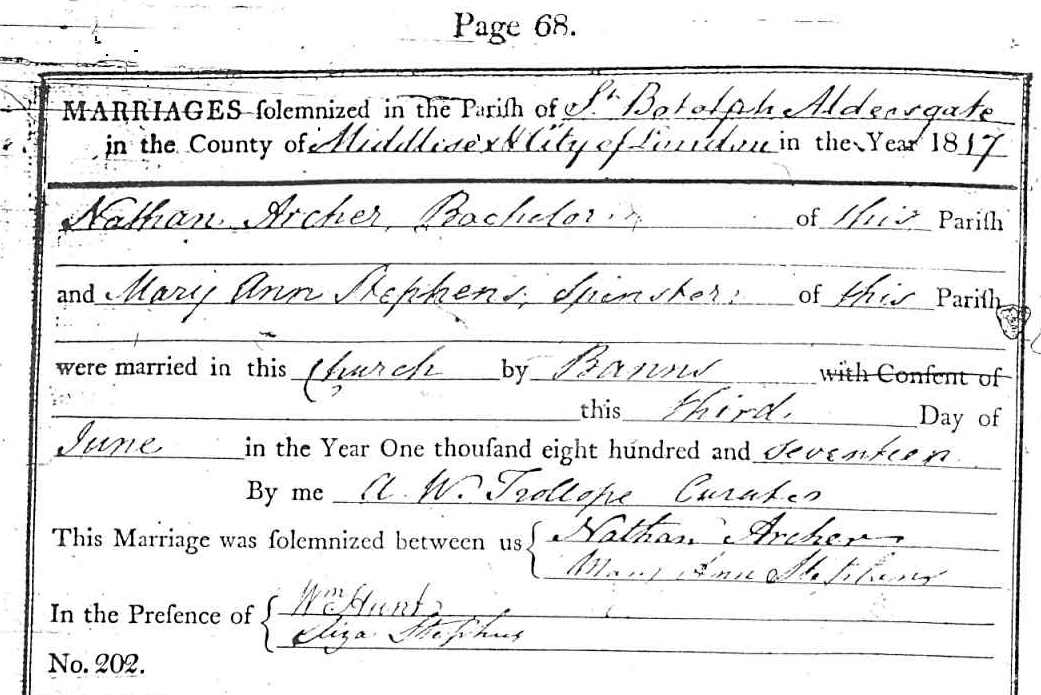 Page 68.
MARRIAGES ſolemnized in the Pariſh of St. Botolph Aldersgate
in the County of Middlesex & City of London in the Year 1817
Nathan Archer, Bachelor of this Pariſh
and Mary Ann Stephens, Spinster of this Pariſh
were married in this Church by Banns with Conſent of
this third Day of
June in the Year One thouſand eight hundred and seventeen
By me A. W. Trollope Curate
This Marriage was ſolemnized between us { Nathan Archer
Mary Ann Stephens
In the Preſence of { Wm Hunt
Eliza Stephens
No. 202.